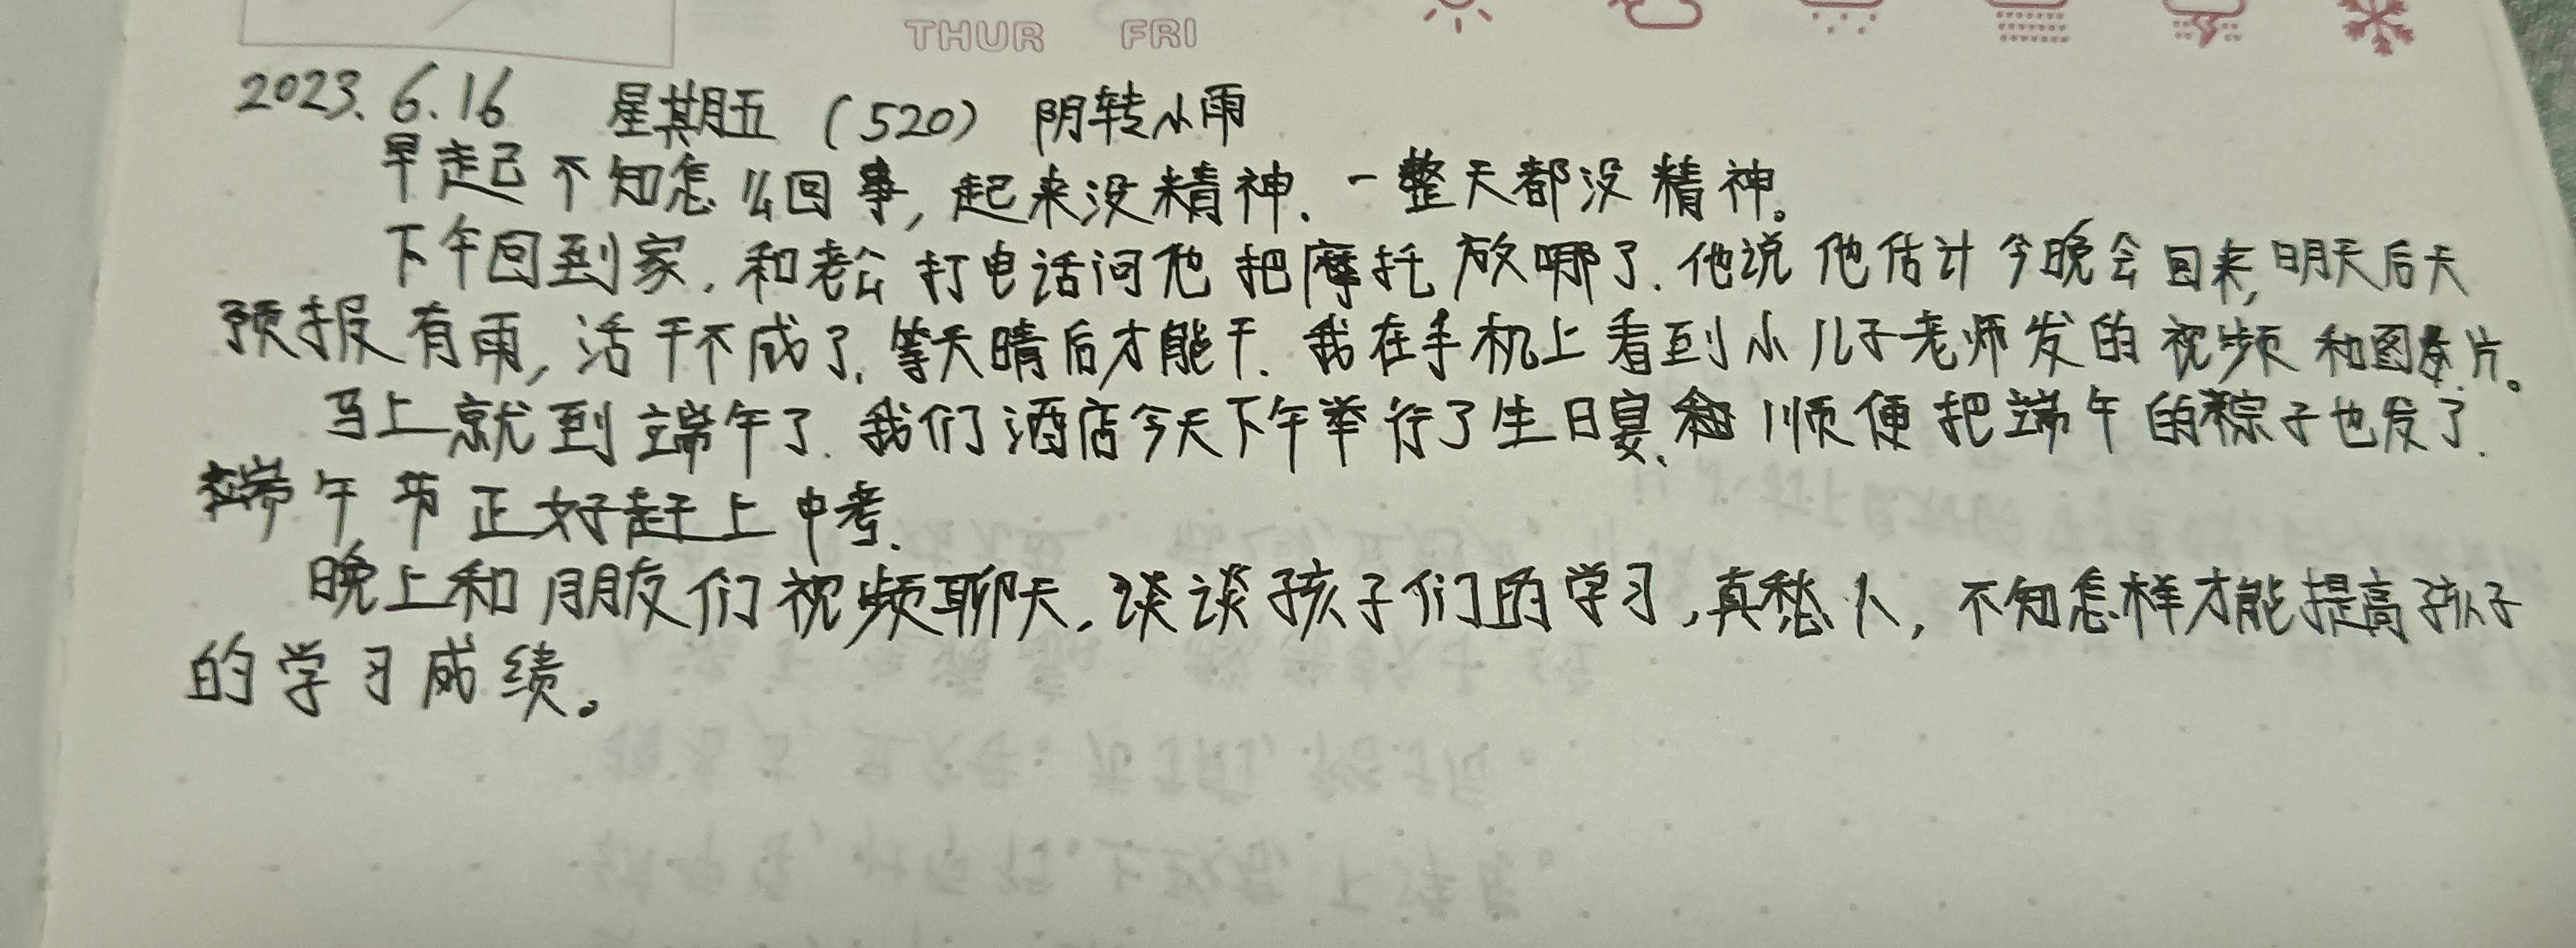 THUR FRI
2023.6.16 星期五 (520) 阴转小雨
早起不知怎么回事,起来没精神.一整天都没精神。
下午回到家.和老公打电话问他把摩托放哪了.他说他估计今晚会回来,明天后天
预报有雨,活干不成了.等天晴后才能干.我在手机上看到小儿子老师发的视频和图片。
马上就到端午了.我们酒店今天下午举行了生日宴、顺便把端午的粽子也发了.
端午节正好赶上中考.
晚上和朋友们视频聊天.谈谈孩子们的学习,真愁人,不知怎样才能提高孩子
的学习成绩。